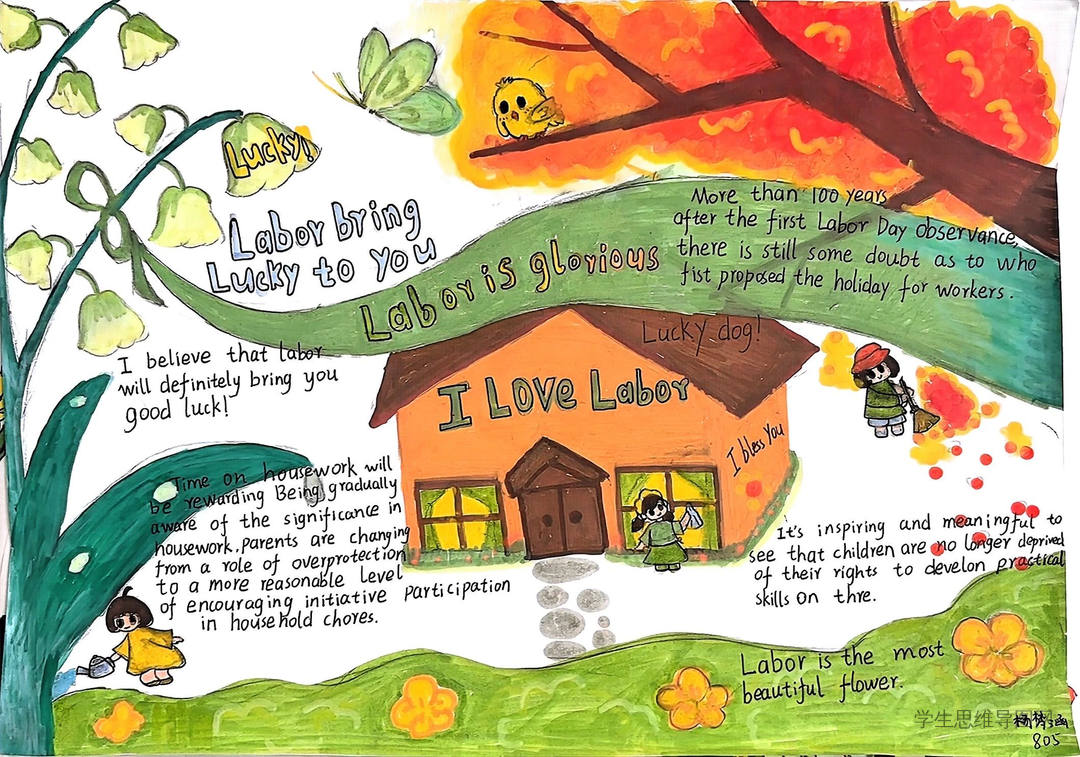 Lucky!
Labor bring
Lucky to you
Labor is glorious
More than 100 years
after the first Labor Day observance,
there is still some doubt as to who
fist proposed the holiday for workers.
Lucky dog!
I LOVE Labor
I bless You
I believe that labor
will definitely bring you
good luck!
Time on housework will
be rewarding Being gradually
aware of the significance in
housework, parents are changing
from a role of overprotection
to a more reasonable level
of encouraging initiative participation
in household chores.
It's inspiring and meaningful to
see that children are no longer deprived
of their rights to develon practical
skills on thre.
Labor is the most
beautiful flower.
学生思维导图网
805